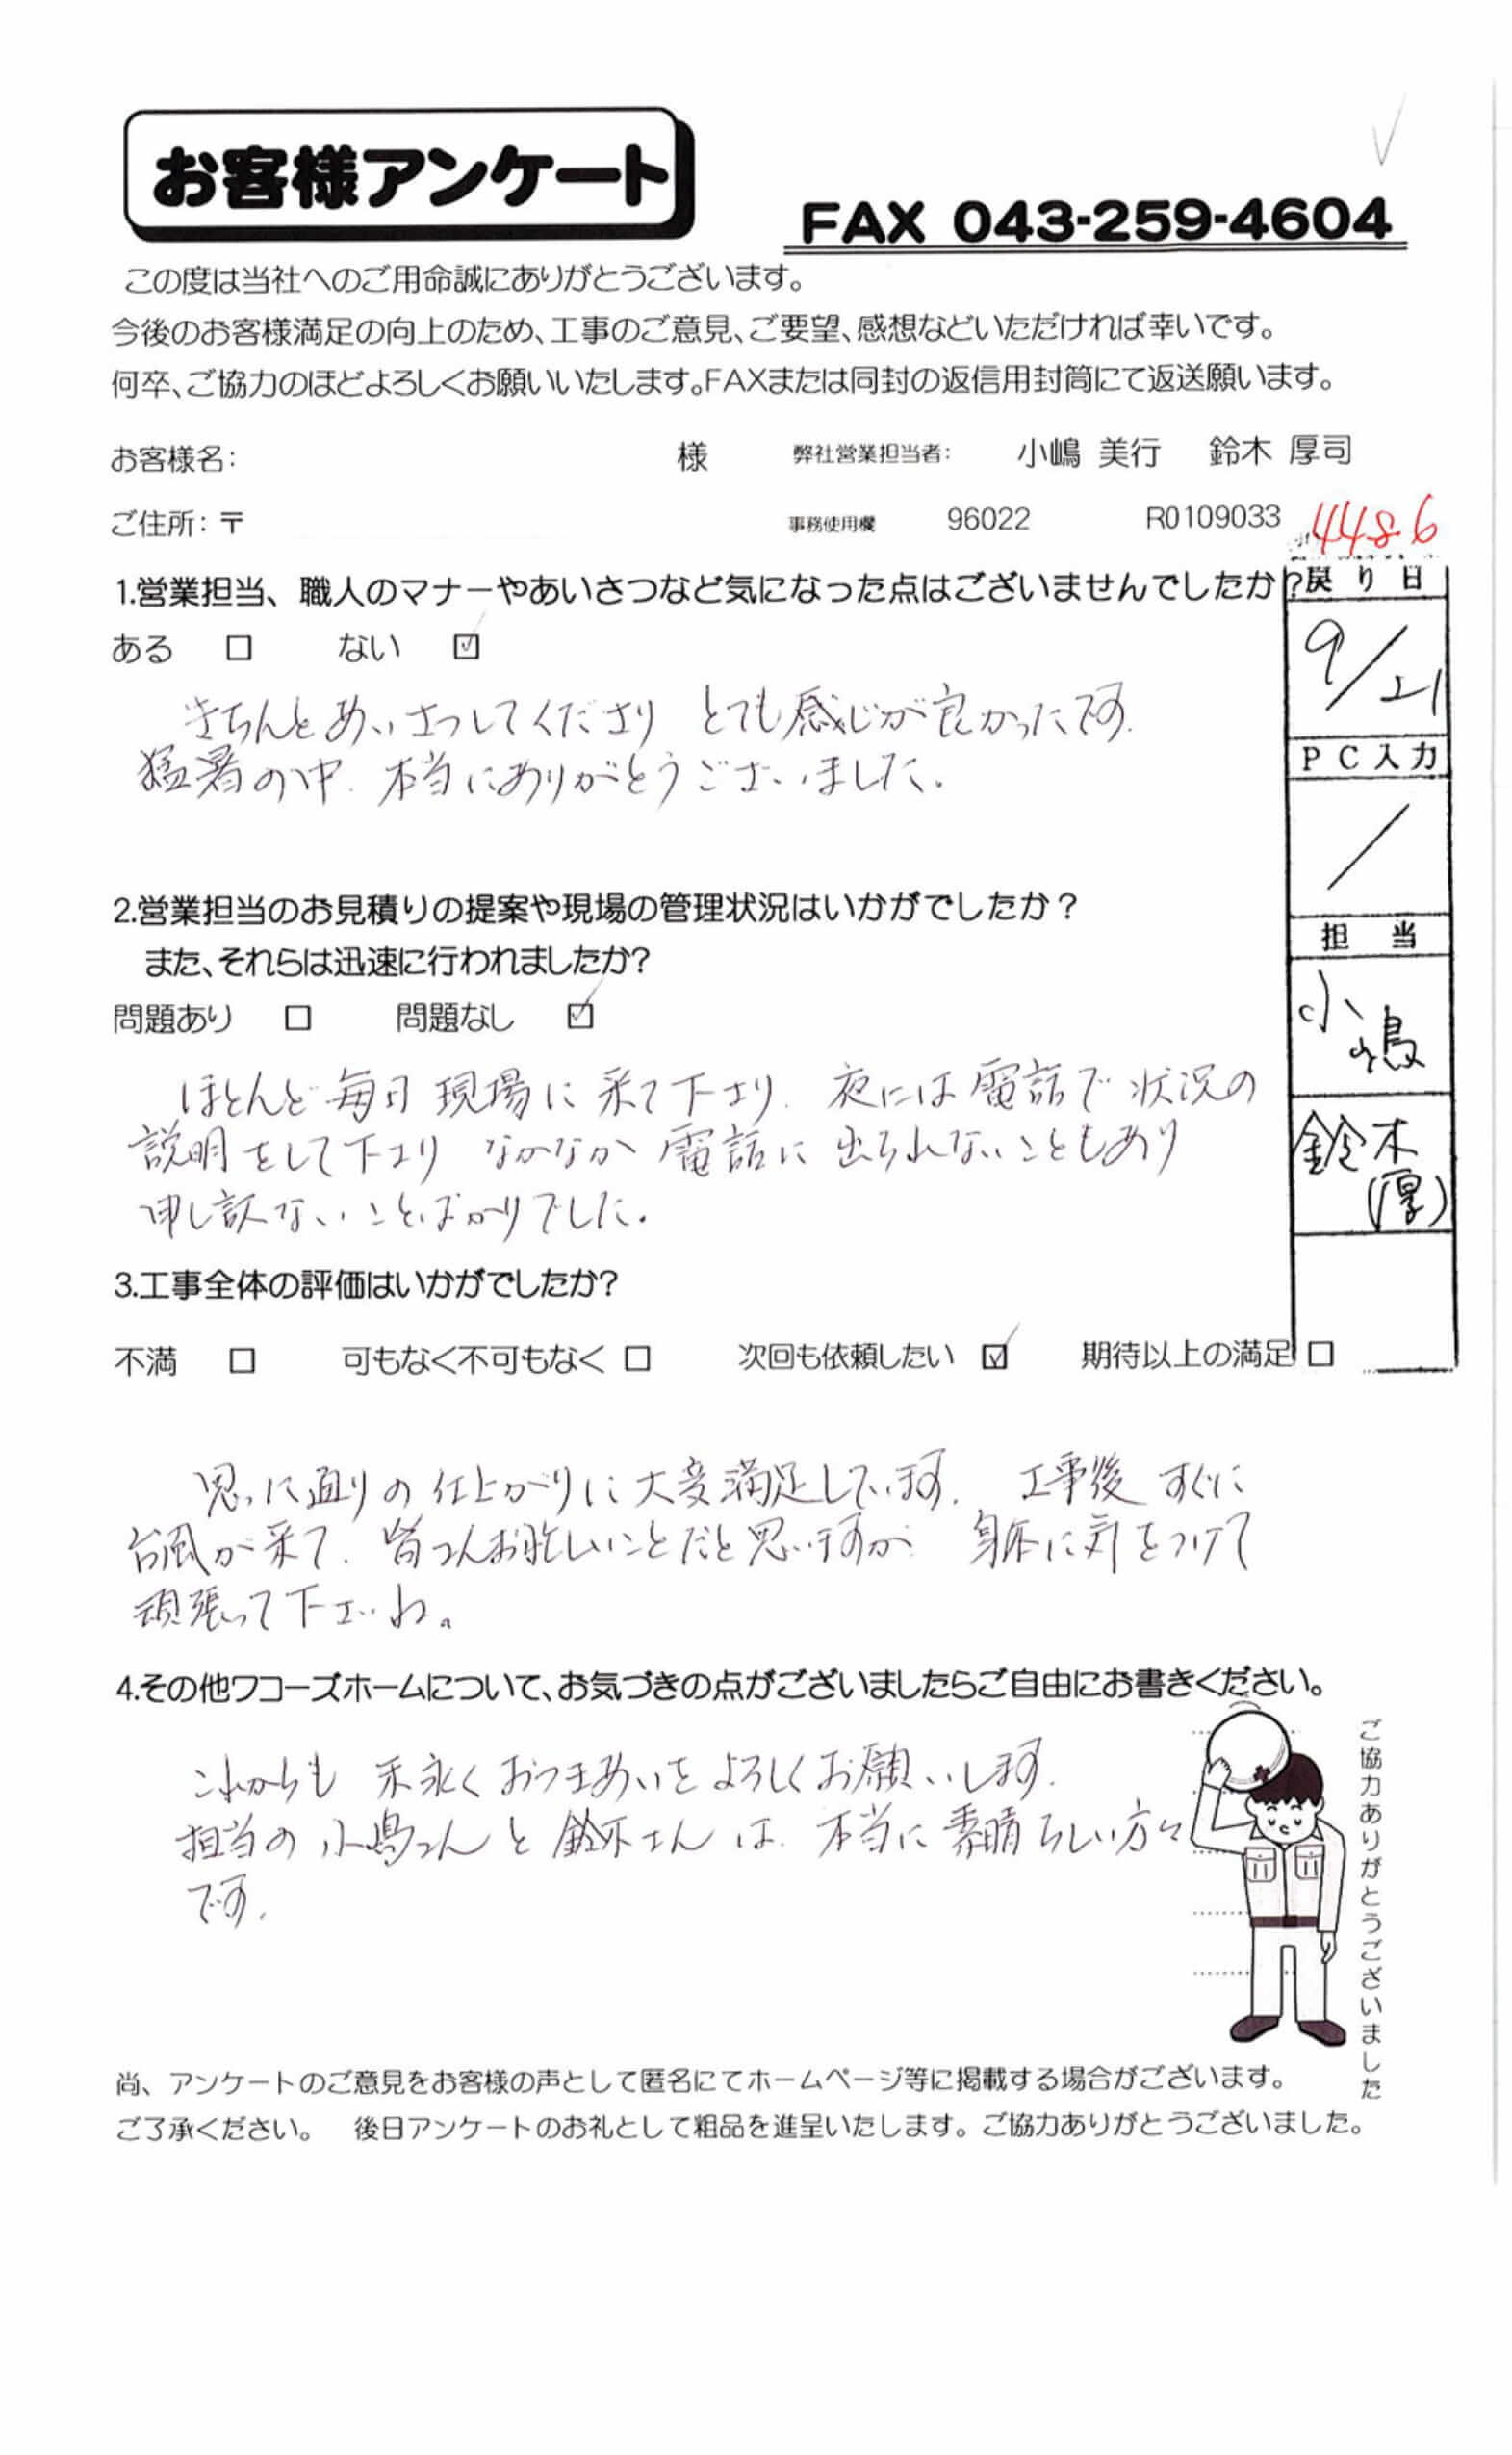 お客様アンケート
FAX 043-259-4604
この度は当社へのご用命誠にありがとうございます。
今後のお客様満足の向上のため、工事のご意見、ご要望、感想などいただければ幸いです。
何卒、ご協力のほどよろしくお願いいたします。FAXまたは同封の返信用封筒にて返送願います。
お客様名： 様 弊社営業担当者： 小嶋 美行 鈴木 厚司
ご住所：〒 事務使用欄 96022 R0109033 4486
1.営業担当、職人のマナーやあいさつなど気になった点はございませんでしたか？
ある □ ない ☑
きちんとあいさつしてくださり とても感じが良かったです.
猛暑の中. 本当にありがとうございました.
戻り日
9/21
PC入力
/
担当
小嶋
鈴木
(厚)
2.営業担当のお見積りの提案や現場の管理状況はいかがでしたか？
また、それらは迅速に行われましたか？
問題あり □ 問題なし ☑
ほとんど毎日 現場に来て下さり. 夜には電話で状況の
説明をして下さり なかなか電話に出られないこともあり
申し訳ないことばかりでした.
3.工事全体の評価はいかがでしたか？
不満 □ 可もなく不可もなく □ 次回も依頼したい ☑ 期待以上の満足 □
思った通りの仕上がりに大変満足しています. 工事後 すぐに
台風が来て. 皆さんお忙しいことだと思いますが 身体に気をつけて
頑張って下さいね。
4.その他ワコーズホームについて、お気づきの点がございましたらご自由にお書きください。
これからも 末永く おつきあいを よろしくお願いします.
担当の 小嶋さんと 鈴木さんは. 本当に素晴らしい方々
です.
ご協力ありがとうございました
尚、アンケートのご意見をお客様の声として匿名にてホームページ等に掲載する場合がございます。
ご了承ください。 後日アンケートのお礼として粗品を進呈いたします。ご協力ありがとうございました。